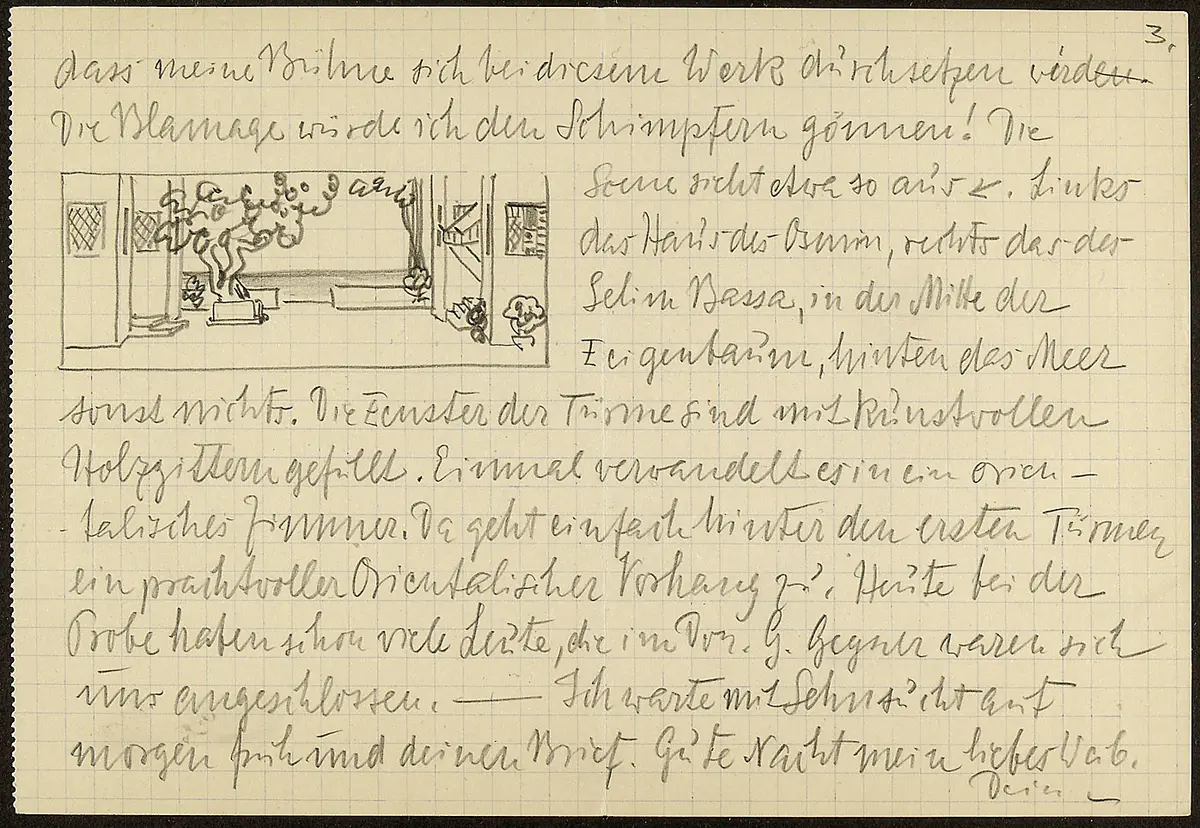 3.
dass meine Bühne sich bei diesem Werk durchsetzen wird.
Die Blamage würde ich den Schimpfern gönnen! Die
Scene sieht etwa so aus <. Links
das Haus des Osmin, rechts das des
Selim Bassa, in der Mitte der
Feigenbaum, hinten das Meer
sonst nichts. Die Fenster der Türme sind mit kunstvollen
Holzgittern gefüllt. Einmal verwandelt es in ein orien-
-talisches Zimmer. Da geht einfach hinter den ersten Türmen
ein prachtvoller Orientalischer Vorhang zu. Heute bei der
Probe haben schon viele Leute, die im Don. G. Gegner waren sich
uns angeschlossen. — Ich warte mit Sehnsucht auf
morgen früh und deinen Brief. Gute Nacht mein liebes Weib.
Dein